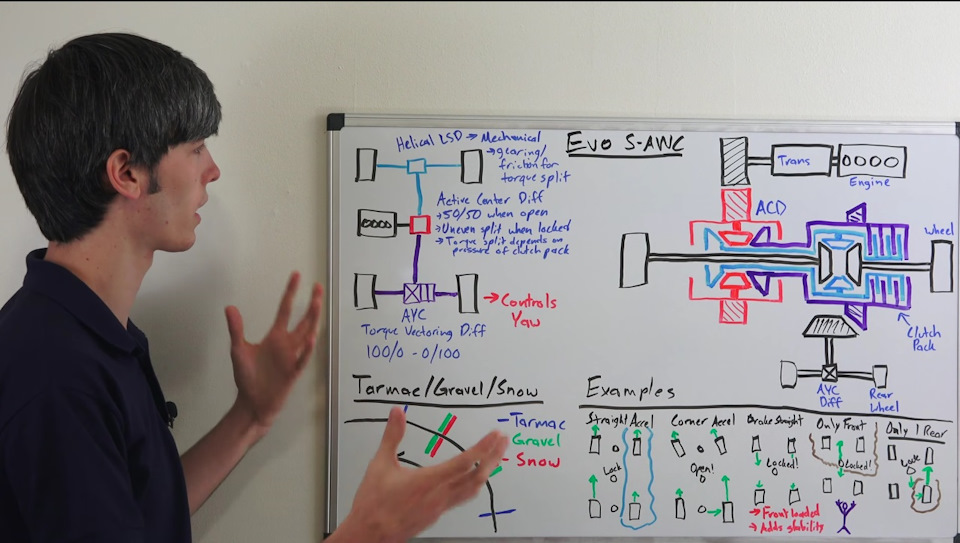 Evo S-AWC
Helical LSD → Mechanical
→ gearing/
friction for
torque split
Active Center Diff
→ 50/50 when open
→ Uneven split when locked
→ Torque split depends on
pressure of clutch pack
AYC
→ Controls
Yaw
Torque Vectoring Diff
100/0 - 0/100
Trans
Engine
ACD
Wheel
Clutch
Pack
AYC
Diff
Rear
Wheel
Tarmac/Gravel/Snow
- Tarmac
- Gravel
- Snow
Examples
Straight Accel
Lock
Corner Accel
Open!
Brake Straight
Locked!
→ Front loaded
→ Adds stability
Only Front
Locked!
Only 1 Rear
Lock